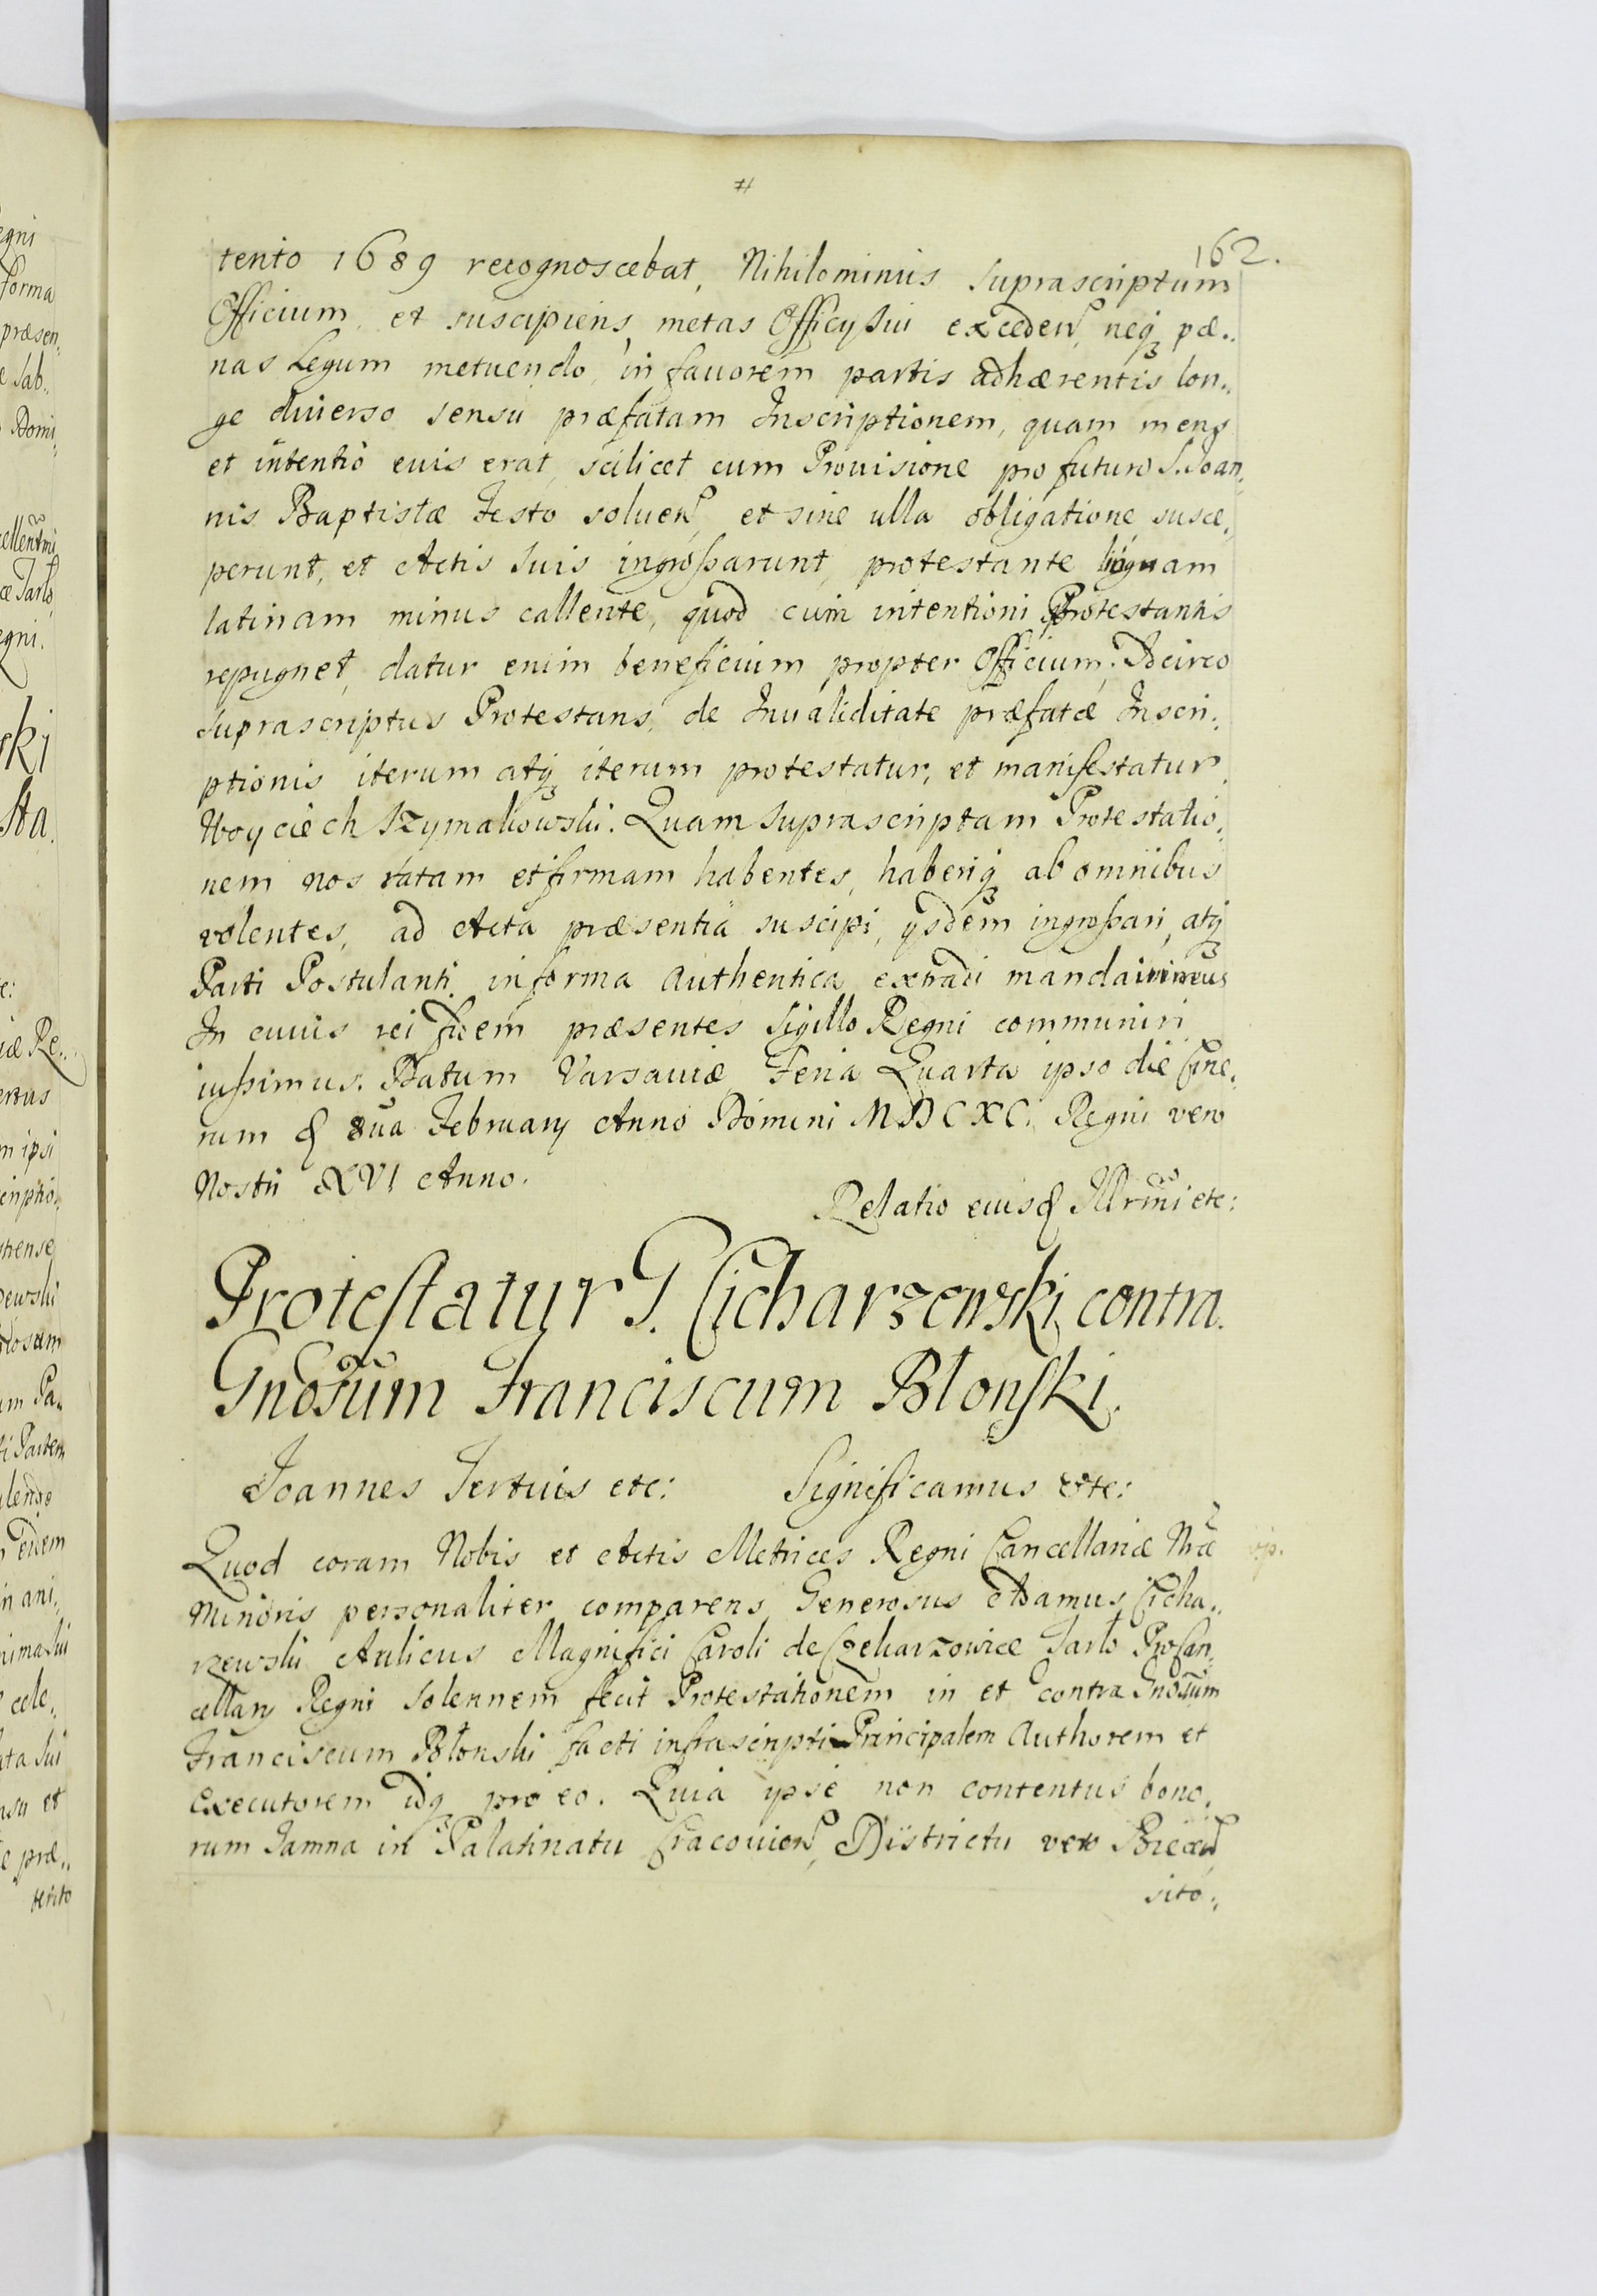 #
162.
tento 1689 recognoscebat, Nihilominus suprascriptum
Officium, et suscipiens, metas Officÿ sui exceden, neq pæ..
nas Legum metuendo, in fauorem partis adhærentis lon.,
ge diuerso sensu præfatam Inscriptionem, quam mens
et intentio euis erat, scilicet cum Prouisione pro futuro S. Joan,
nis Baptistæ Festo soluen, et sine ulla obligatione susce,
perunt, et Actis suis ingroßarunt, protestante linguam
latinam minus callente, quod cum intentioni Protestantis
repugnet, datur enim beneficium propter Officium. Idcirco
suprascriptus Protestans, de Inualiditate præfatæ Inscri,
ptionis iterum atq iterum protestatur, et manifestatur
Woyciech Szymakowski. Quam suprascriptam Protestatio,
nem nos ratam et firmam habentes, haberiq ab omnibus
volentes, ad Acta præsentia suscipi, ÿsdem ingroßari, atq
Parti Postulanti in forma authentica extradi mandauimus
In cuius rei fidem præsentes Sigillo Regni communiri
iußimus. Datum Varsauiæ Feria Quarta ipso die Cine,
rum d 8ua Februarÿ Anno Domini MDCXC. Regni vero
Nostri XVI Anno.
Relatio eiusd Illrmi etc:
Protestatur G. Cicharzewski contra
Gnosum Franciscum Błonski.
Joannes Tertius etc: Significamus etc:
Quod coram Nobis et Actis Metrices Regni Cancellariæ Nræ
Minoris personaliter comparens Generosus Adamus Cicha,,
rzewski Aulicus Magnifici Caroli de Czekarzowice Tarło ProCan,
cellarÿ Regni solennem fecit Protestationem in et contra Gnosum
Franciscum Błonski facti infrascripti Principalem Authorem et
Executorem idq pro eo. Quia ipse non contentus bono,
rum Jamna in Palatinatu Cracouien, Districtu vero Biecen
sito,,